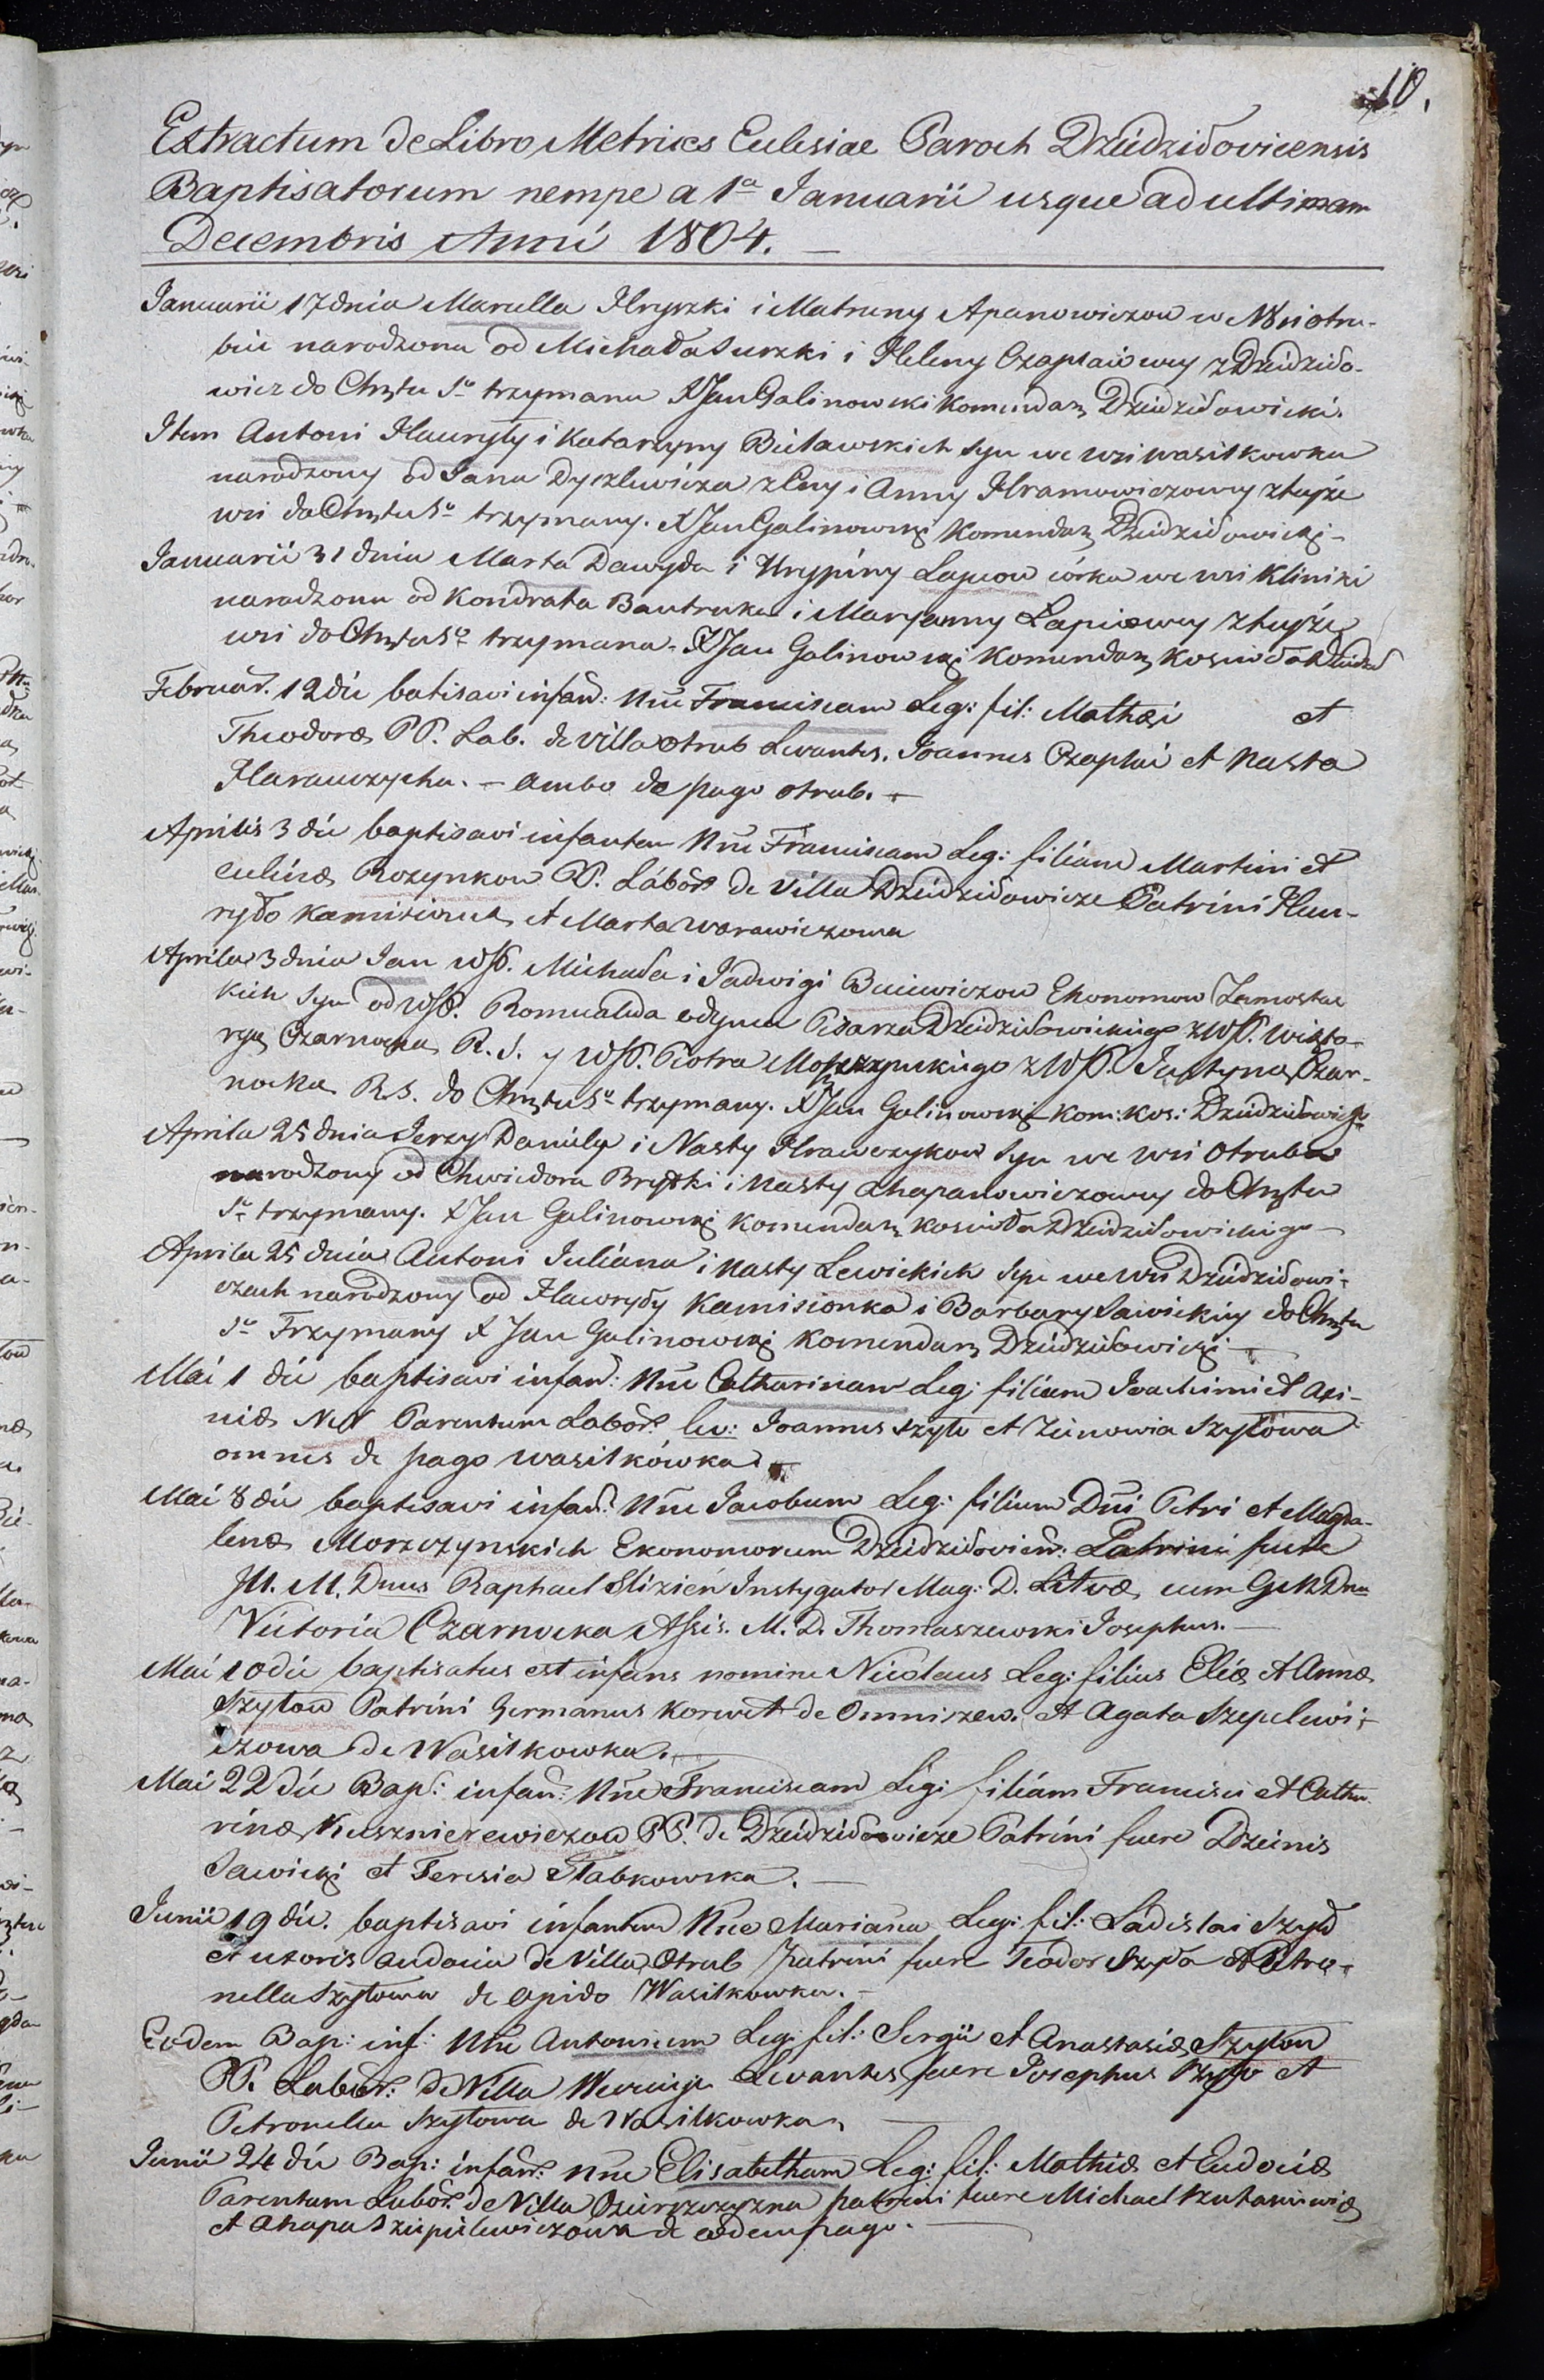 10.
Extractum de Libro Metrices Eclesiae Paroch Dziedziłovicensis
Baptisatorum nempe a 1a Januarii usque ad ultimam
Decembris Anni 1804. —
Januarii 17 dnia Marcella Hryszki i Matruny Apanowiczow w Wsi otru-
bie narodzona od Michała Surzki i Heleny Czaplaiowey z Dziedziło-
wicz do Chrztu So trzymana X Jan Galinowski Komendarz Dziedziłowicki.
Item Antoni Hawryły i Katarzyny Bielawskich syn we wsi wasilkowka
narodzony od Jana Dyszlewicza z Eny i Anny Hramowiczowey z teyże
wsi do Chrztu So trzymany. X Jan Galinowski Komendarz Dziedziłowicki —
Januarii 31 dnia Marta Dawyda i Hrypiny Lapciow córka we wsi Kliniki
narodzona od Kondrata Bautruka i Maryanny Łapciowey z teyże
wsi do Chrztu So trzymana. X Jan Galinowski Komendarz Kościoła Dziedził
Februar. 12 die batisavi infan: Nne Franciscam Leg: fil: Mathei et
Theodoræ PP. Lab. de villa otrub Levantes. Joannes Czaplai et Nasta
Harauczycha. — ambo de pago otrub. —
Aprilis 3 die baptisavi infantem Nne Franciscam Leg: filiam Martini et
culinæ Rozynkow PP. Labor de Villa Dziedziłowicze Patrini Hau-
ryło Kamisionek et Marta warawiczowa
Aprila 3 dnia Jan WJP. Michała i Jadwigi Buciewiczow Ekonomow Zamostoc
kich syn od WJP. Romualda odynca Pisarza Dziedziłowickiego z WJP. Wikto-
ryą Czarnocką R. S. y WJP. Piotra Morzczynskiego z WJP. Justyną Czar-
nocka R.S. do Chrztu So trzymany. X Jan Galinowski Kom: Kos: Dziedziłowicki
Aprila 25 dnia Jerzy Daniły i Nasty Hrawczykow syn we Wsi Otruba
narodzony od Chwiedora Bryłki i Nasty Ahapanowiczowey do Chrztu
So trzymany. X Jan Galinowski Komendarz kościoła Dziedziłowickiego —
Aprila 25 dnia Antoni Juliana i Nasty Lewickich syn we Wsi Dziedziłowi-
czach narodzony od Hawryły Kamisionka i Barbary Sawickiey do Chrztu
So Trzymany X Jan Galinowski Komendarz Dziedziłowicki —
Mai 1 die baptisavi infan: Nne Catharinam Leg: filiam Joachimi et Axi-
niæ NN Parentum Labor: lev: Joannes Szyło et Zienowia Szyłowa
omnes de pago wasilkówka.
Mai 8 die baptisavi infan: Nne Jacobum Leg: filium Dni Petri et Magda-
lenæ Morzczynskich Ekonomorum Dziedziłovien: Patrini fuere
Ill. M. Dnus Raphael Slizień Instygator Mag: D. Litvæ cum G M Dna
Victoria Czarnocka Assis. M. D. Thomaszewski Josephus. —
Mai 10 die baptisatus est infans nomine Nicolaus Leg: filius Eliæ et Annæ
Szyłow Patrini Germanus Korwet de Omniszew. et Agata Szepelewi-
czowa de Wasilkowka. —
Mai 22 die Bap: infan: Nne Franciscam Leg: filiam Francisci et Catha-
rinæ Kusznierewiczow PP. de Dziedziłowicze Patrini fuere Dzienis
Sawicki et Teresia Słabkowska. —
Junii 19 die. baptisavi infantem Nne Mariana Leg: fil: Ladislai Szyło
et uxoris audocia de Villa Otrub Patrini fuere Teodor Szyła et Petro-
nella Szyłowa de opido Wasilkowka. —
Eodem Bap: inf: Nne Antonium Leg: fil: Sergii et Anastasiæ Szyłow
PP. Labor: de Villa Levantes fuere Josephus Szyło et
Petronella Szyłowa de Wasilkowka
Junii 24 die Bap: infan: Nne Elisabetham Leg: fil: Mathiæ et Eudociæ
Parentum Labor: de Villa patrini fuere Michael
et Ahapa Szepielewiczowa de eodem pago. —